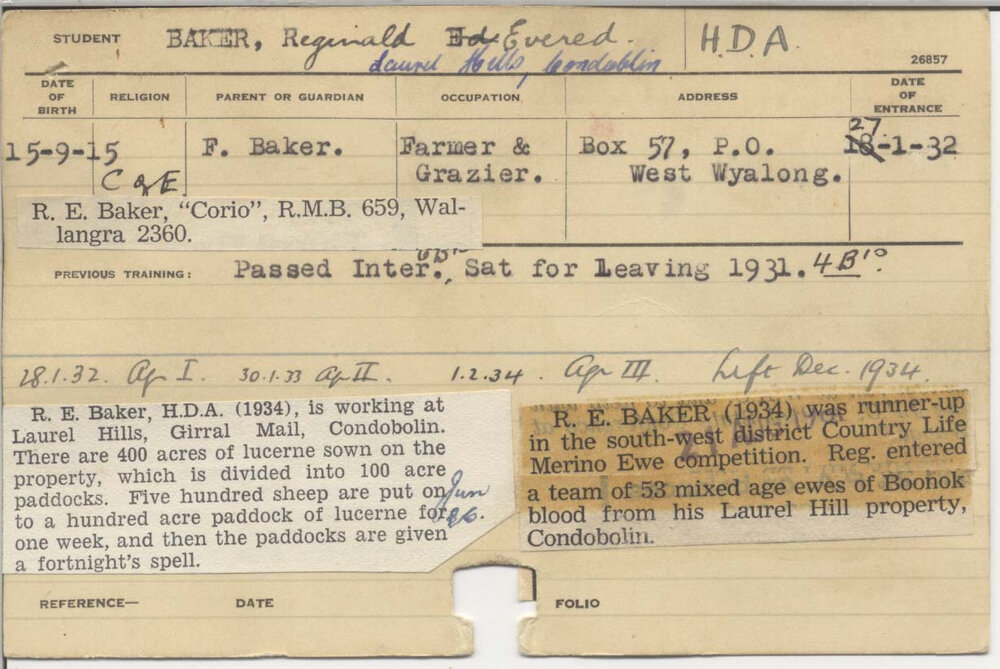 STUDENT BAKER, Reginald Ed Evered. H.D.A.
Laurel Hills, Condoblin
26857
DATE OF BIRTH RELIGION PARENT OR GUARDIAN OCCUPATION ADDRESS DATE OF ENTRANCE
15-9-15 F. Baker. Farmer & Box 57, P.O. 18-1-32
27
C of E Grazier. West Wyalong.
R. E. Baker, “Corio”, R.M.B. 659, Wal-
langra 2360.
PREVIOUS TRAINING: Passed Inter., Sat for Leaving 1931. 4B'^s.
28.1.32. Ag I. 30.1.33 Ag II. 1.2.34. Agr III. Left Dec. 1934.
R. E. Baker, H.D.A. (1934), is working at
Laurel Hills, Girral Mail, Condobolin.
There are 400 acres of lucerne sown on the
property, which is divided into 100 acre
paddocks. Five hundred sheep are put on
to a hundred acre paddock of lucerne for
one week, and then the paddocks are given
a fortnight's spell.
Jun
R. E. BAKER (1934) was runner-up
in the south-west district Country Life
Merino Ewe competition. Reg. entered
a team of 53 mixed age ewes of Boonok
blood from his Laurel Hill property,
Condobolin.
REFERENCE— DATE FOLIO